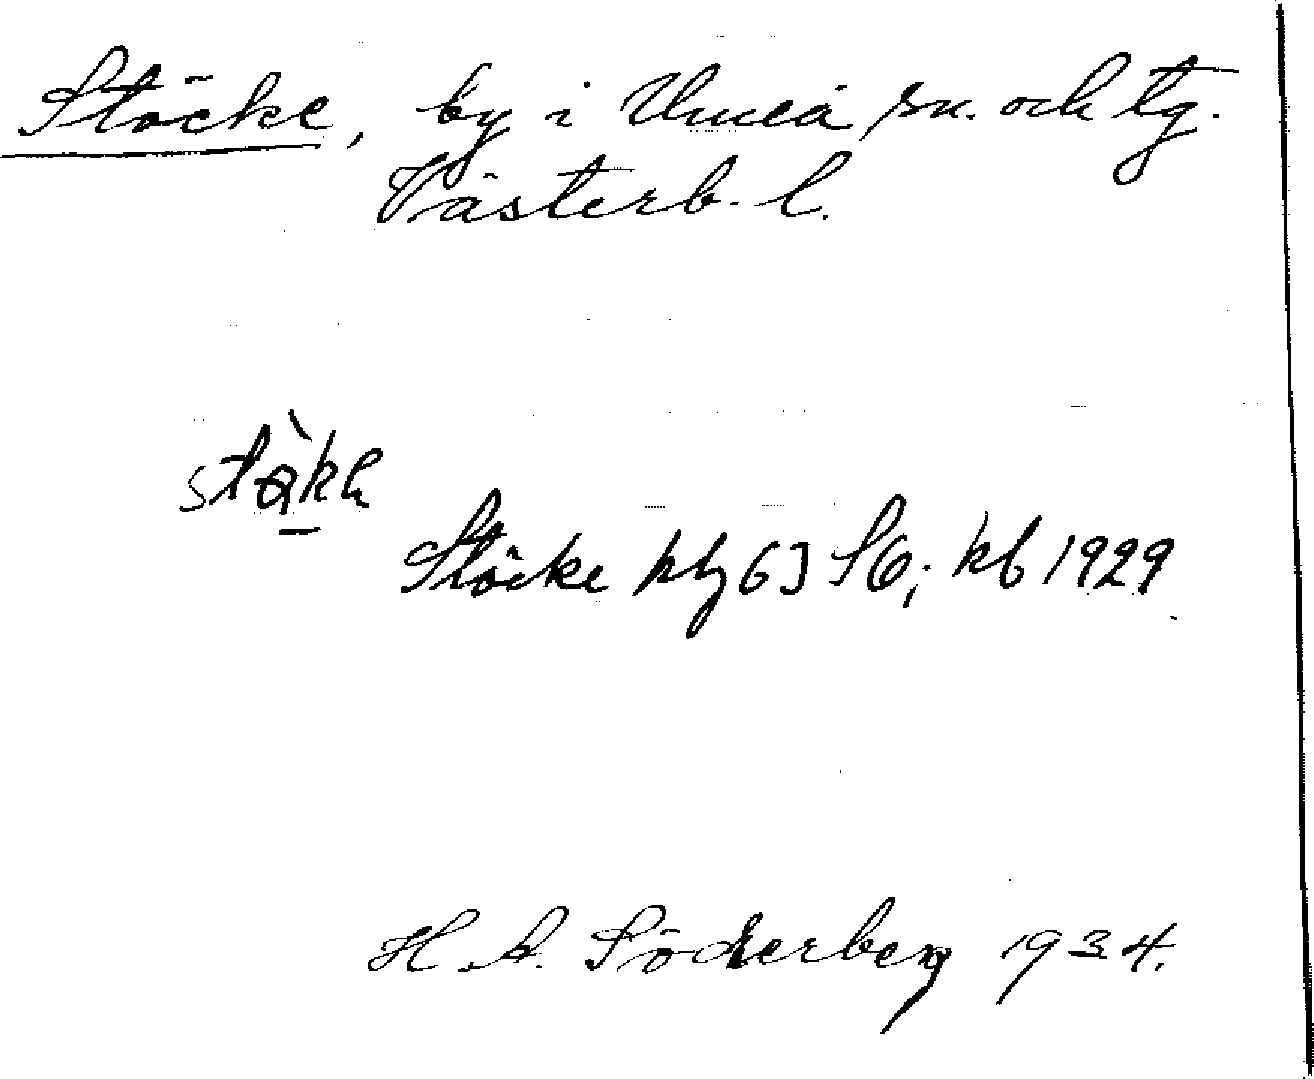 Stöcke, by i Umeå sn. och tg.
Västerb. l.
Stöcke 63 S6; kb 1929
H. A. Söderberg 1934.